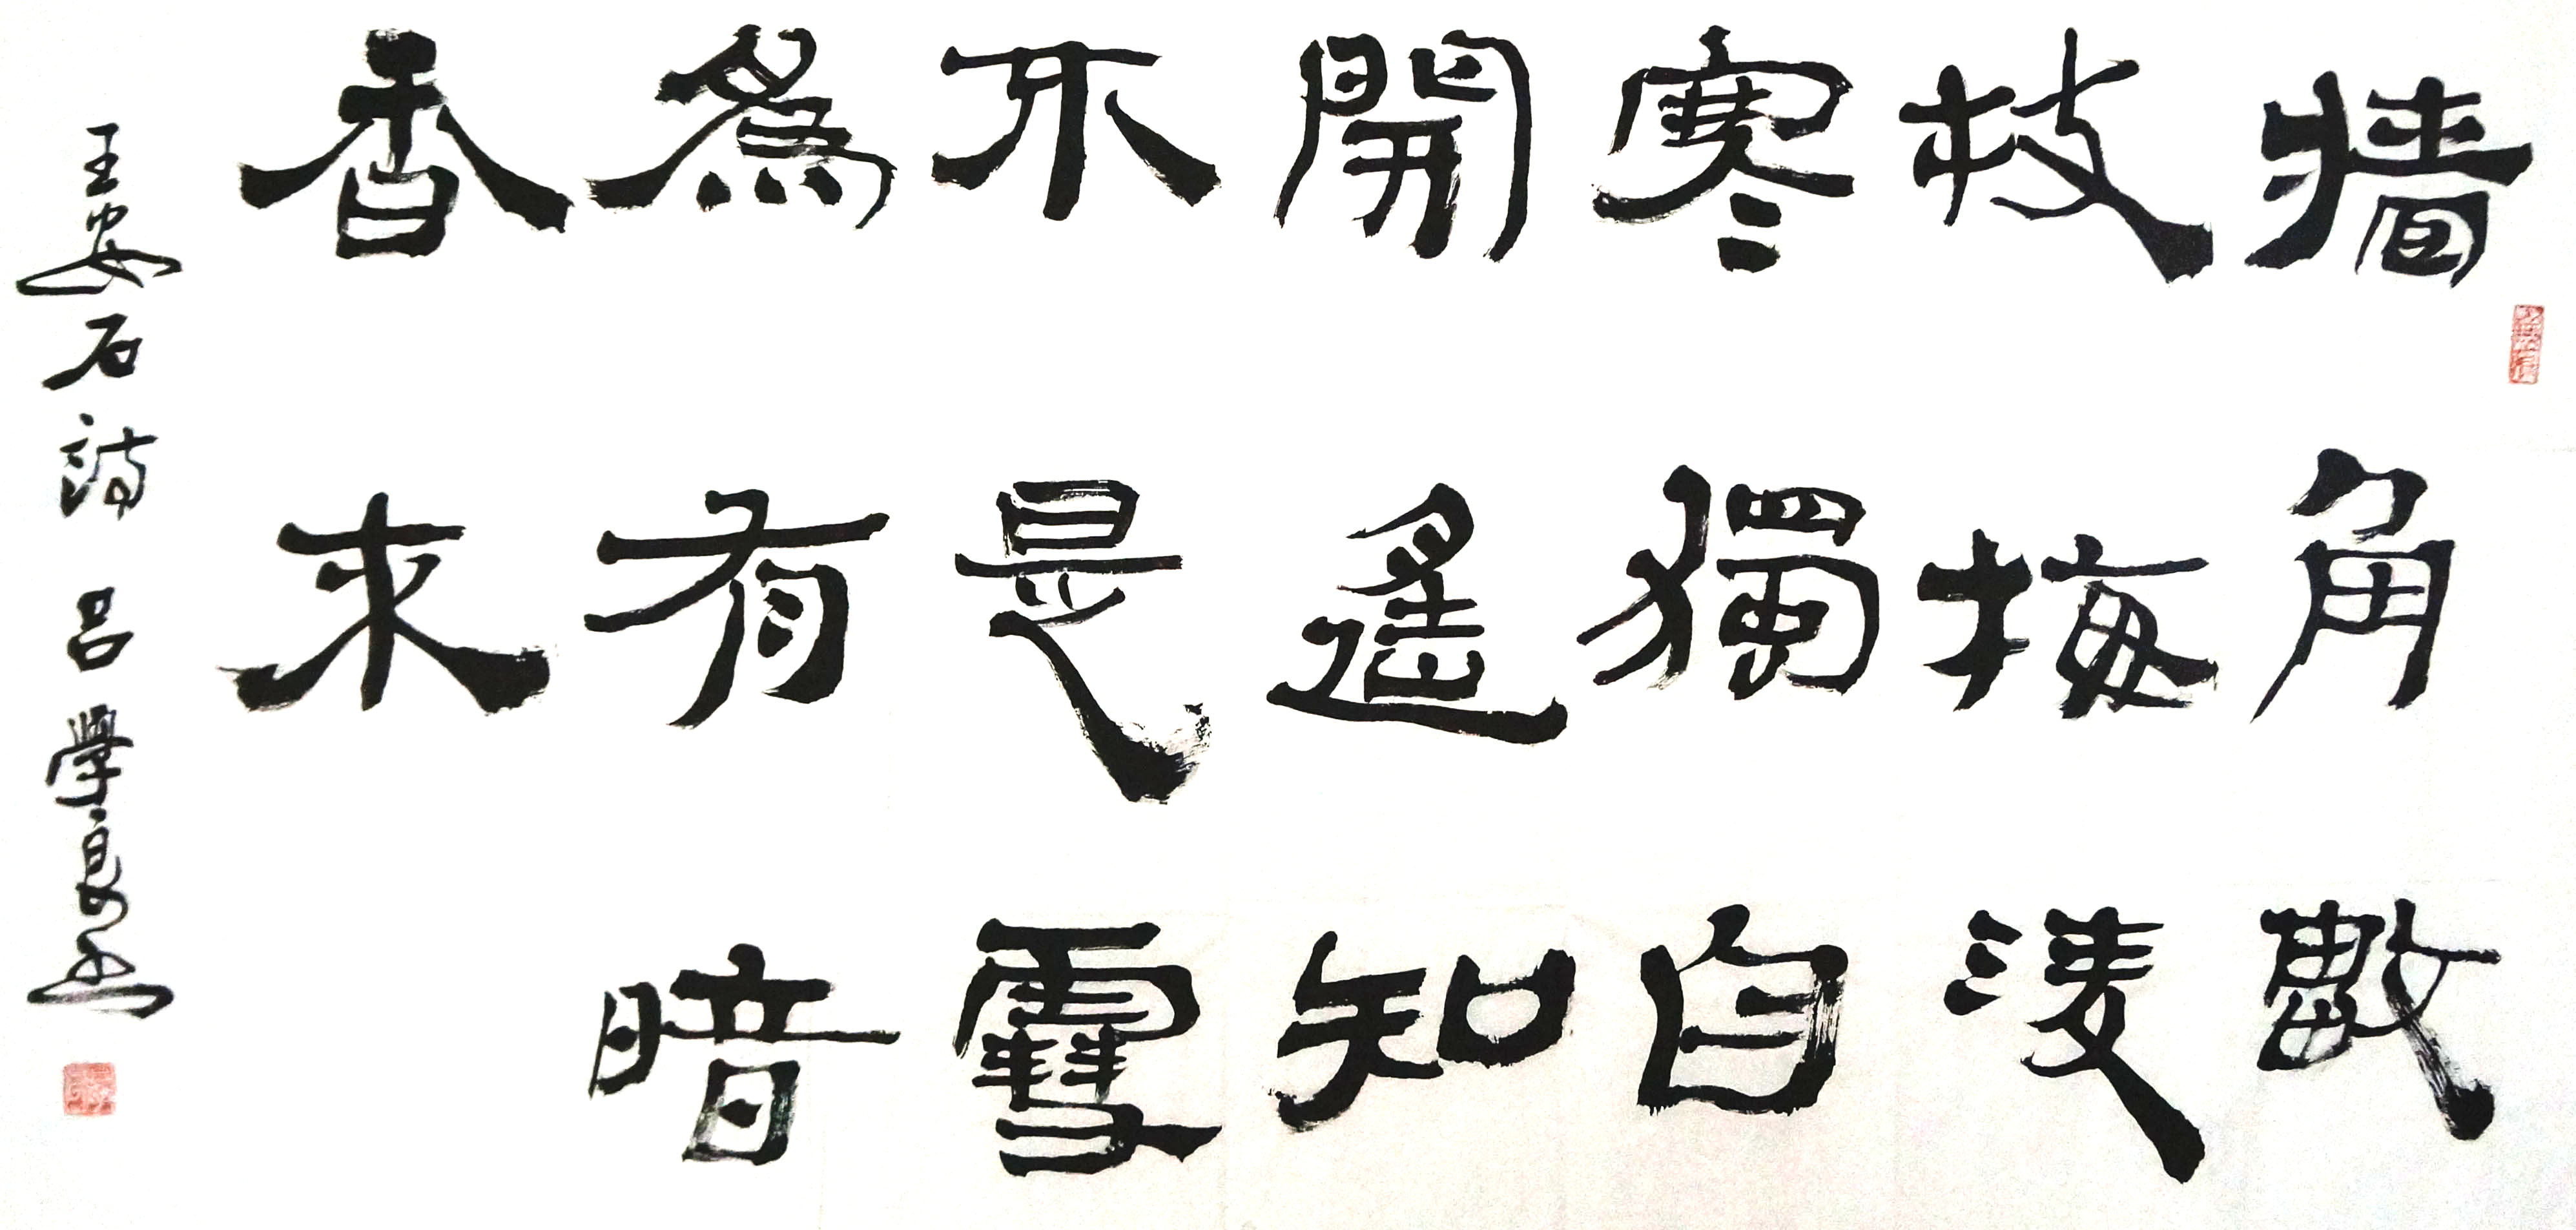 牆角數
枝梅淩
寒獨自
開遙知
不是雪
為有暗
香來
王安石詩 吕學良書